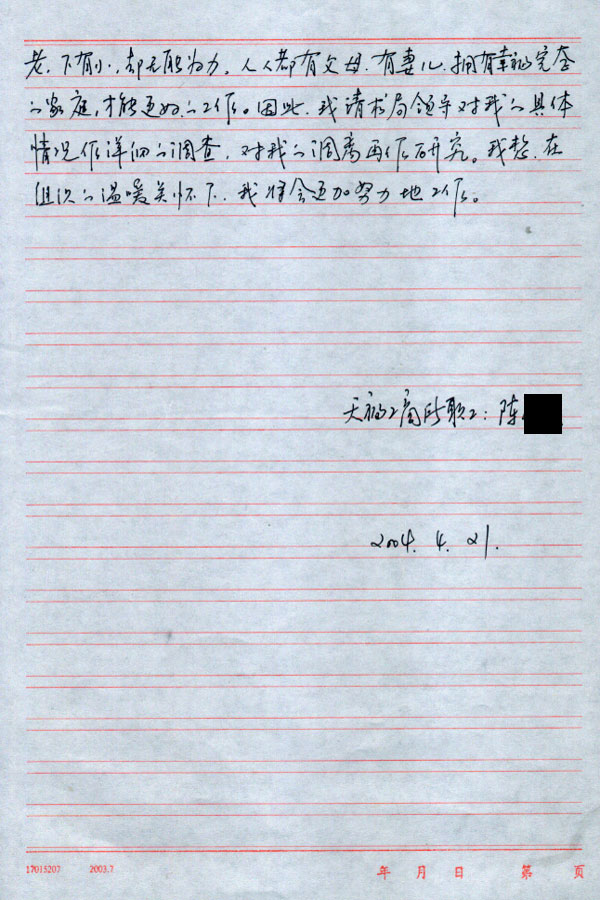 老,下有小,都无能为力。人人都有父母,有妻儿,拥有幸福完整
的家庭,才能更好的工作。因此,我请求局领导对我的具体
情况作详细的调查,对我的调离再作研究。我想,在
组织的温暖关怀下,我将会更加努力地工作。
天福工商所职工:陈
2004. 4. 21.
17015207 2003.7 年 月 日 第 页